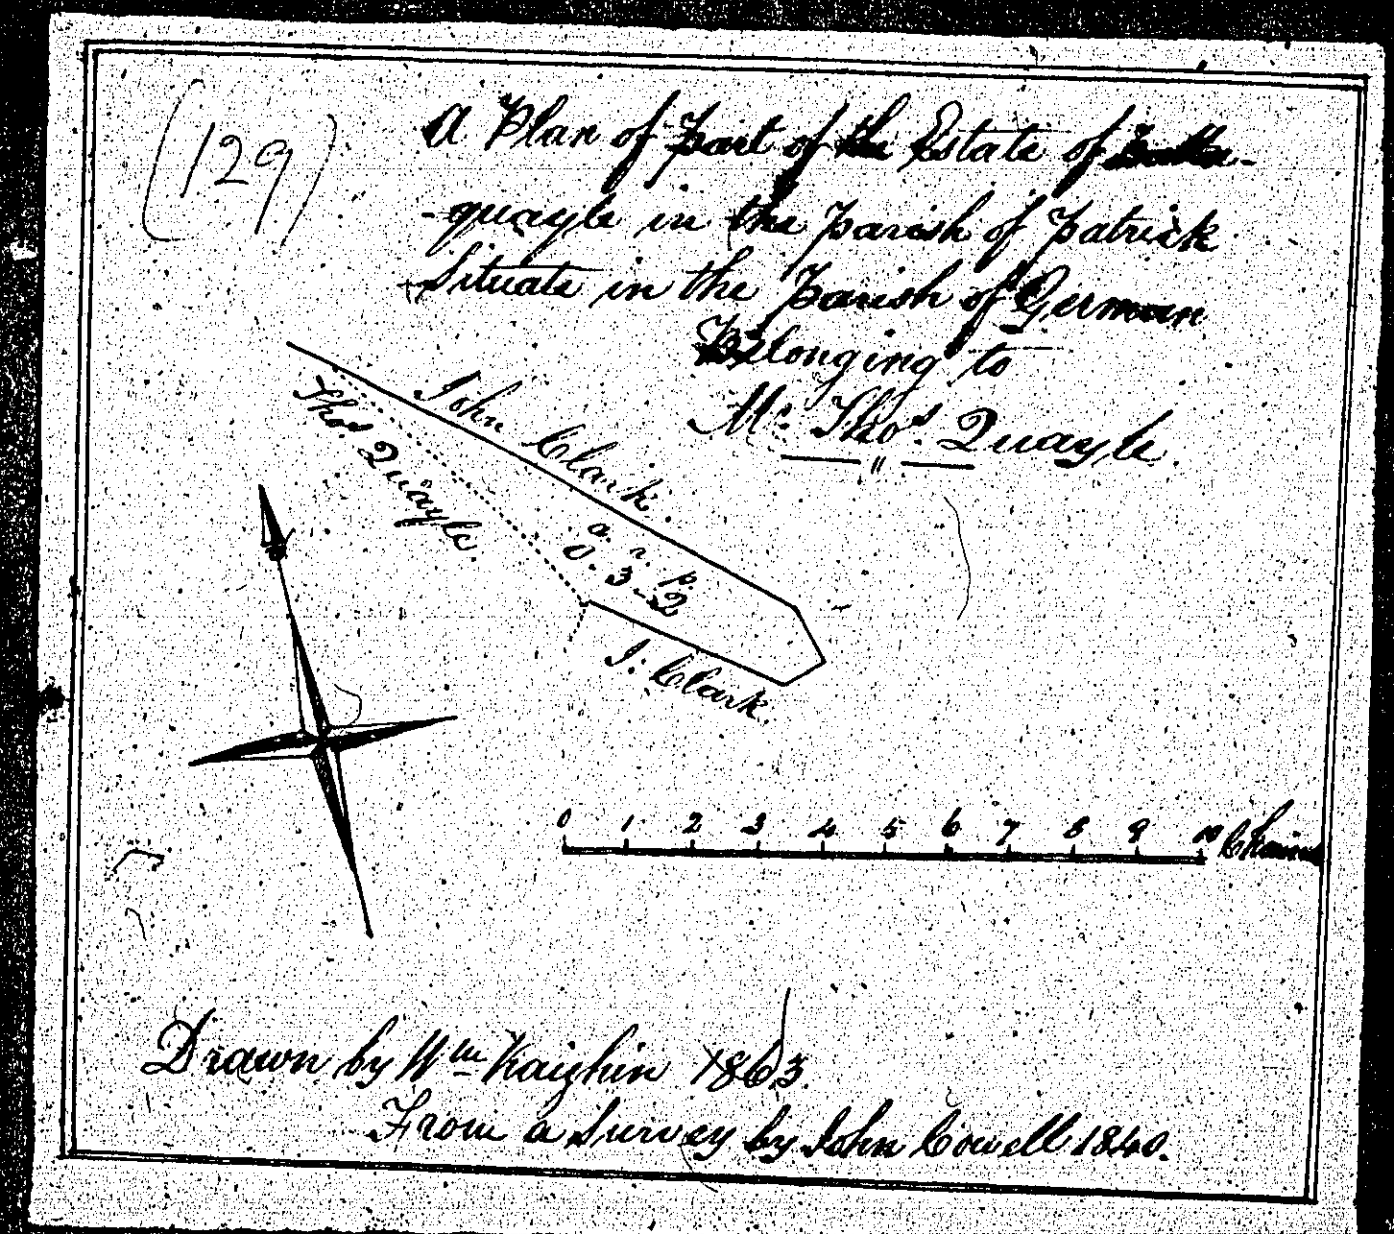 (129)
A Plan of part of the Estate of Balla-
-quayle in the parish of Patrick
Situate in the Parish of German
Belonging to
Mr. Thos. Quayle.
John Clark.
Thos. Quayle.
a. r. p.
0. 3. 2
J. Clark.
0 1 2 3 4 5 6 7 8 9 10 Chains
Drawn by Wm Kaighin 1863.
From a Survey by John Cowell 1840.